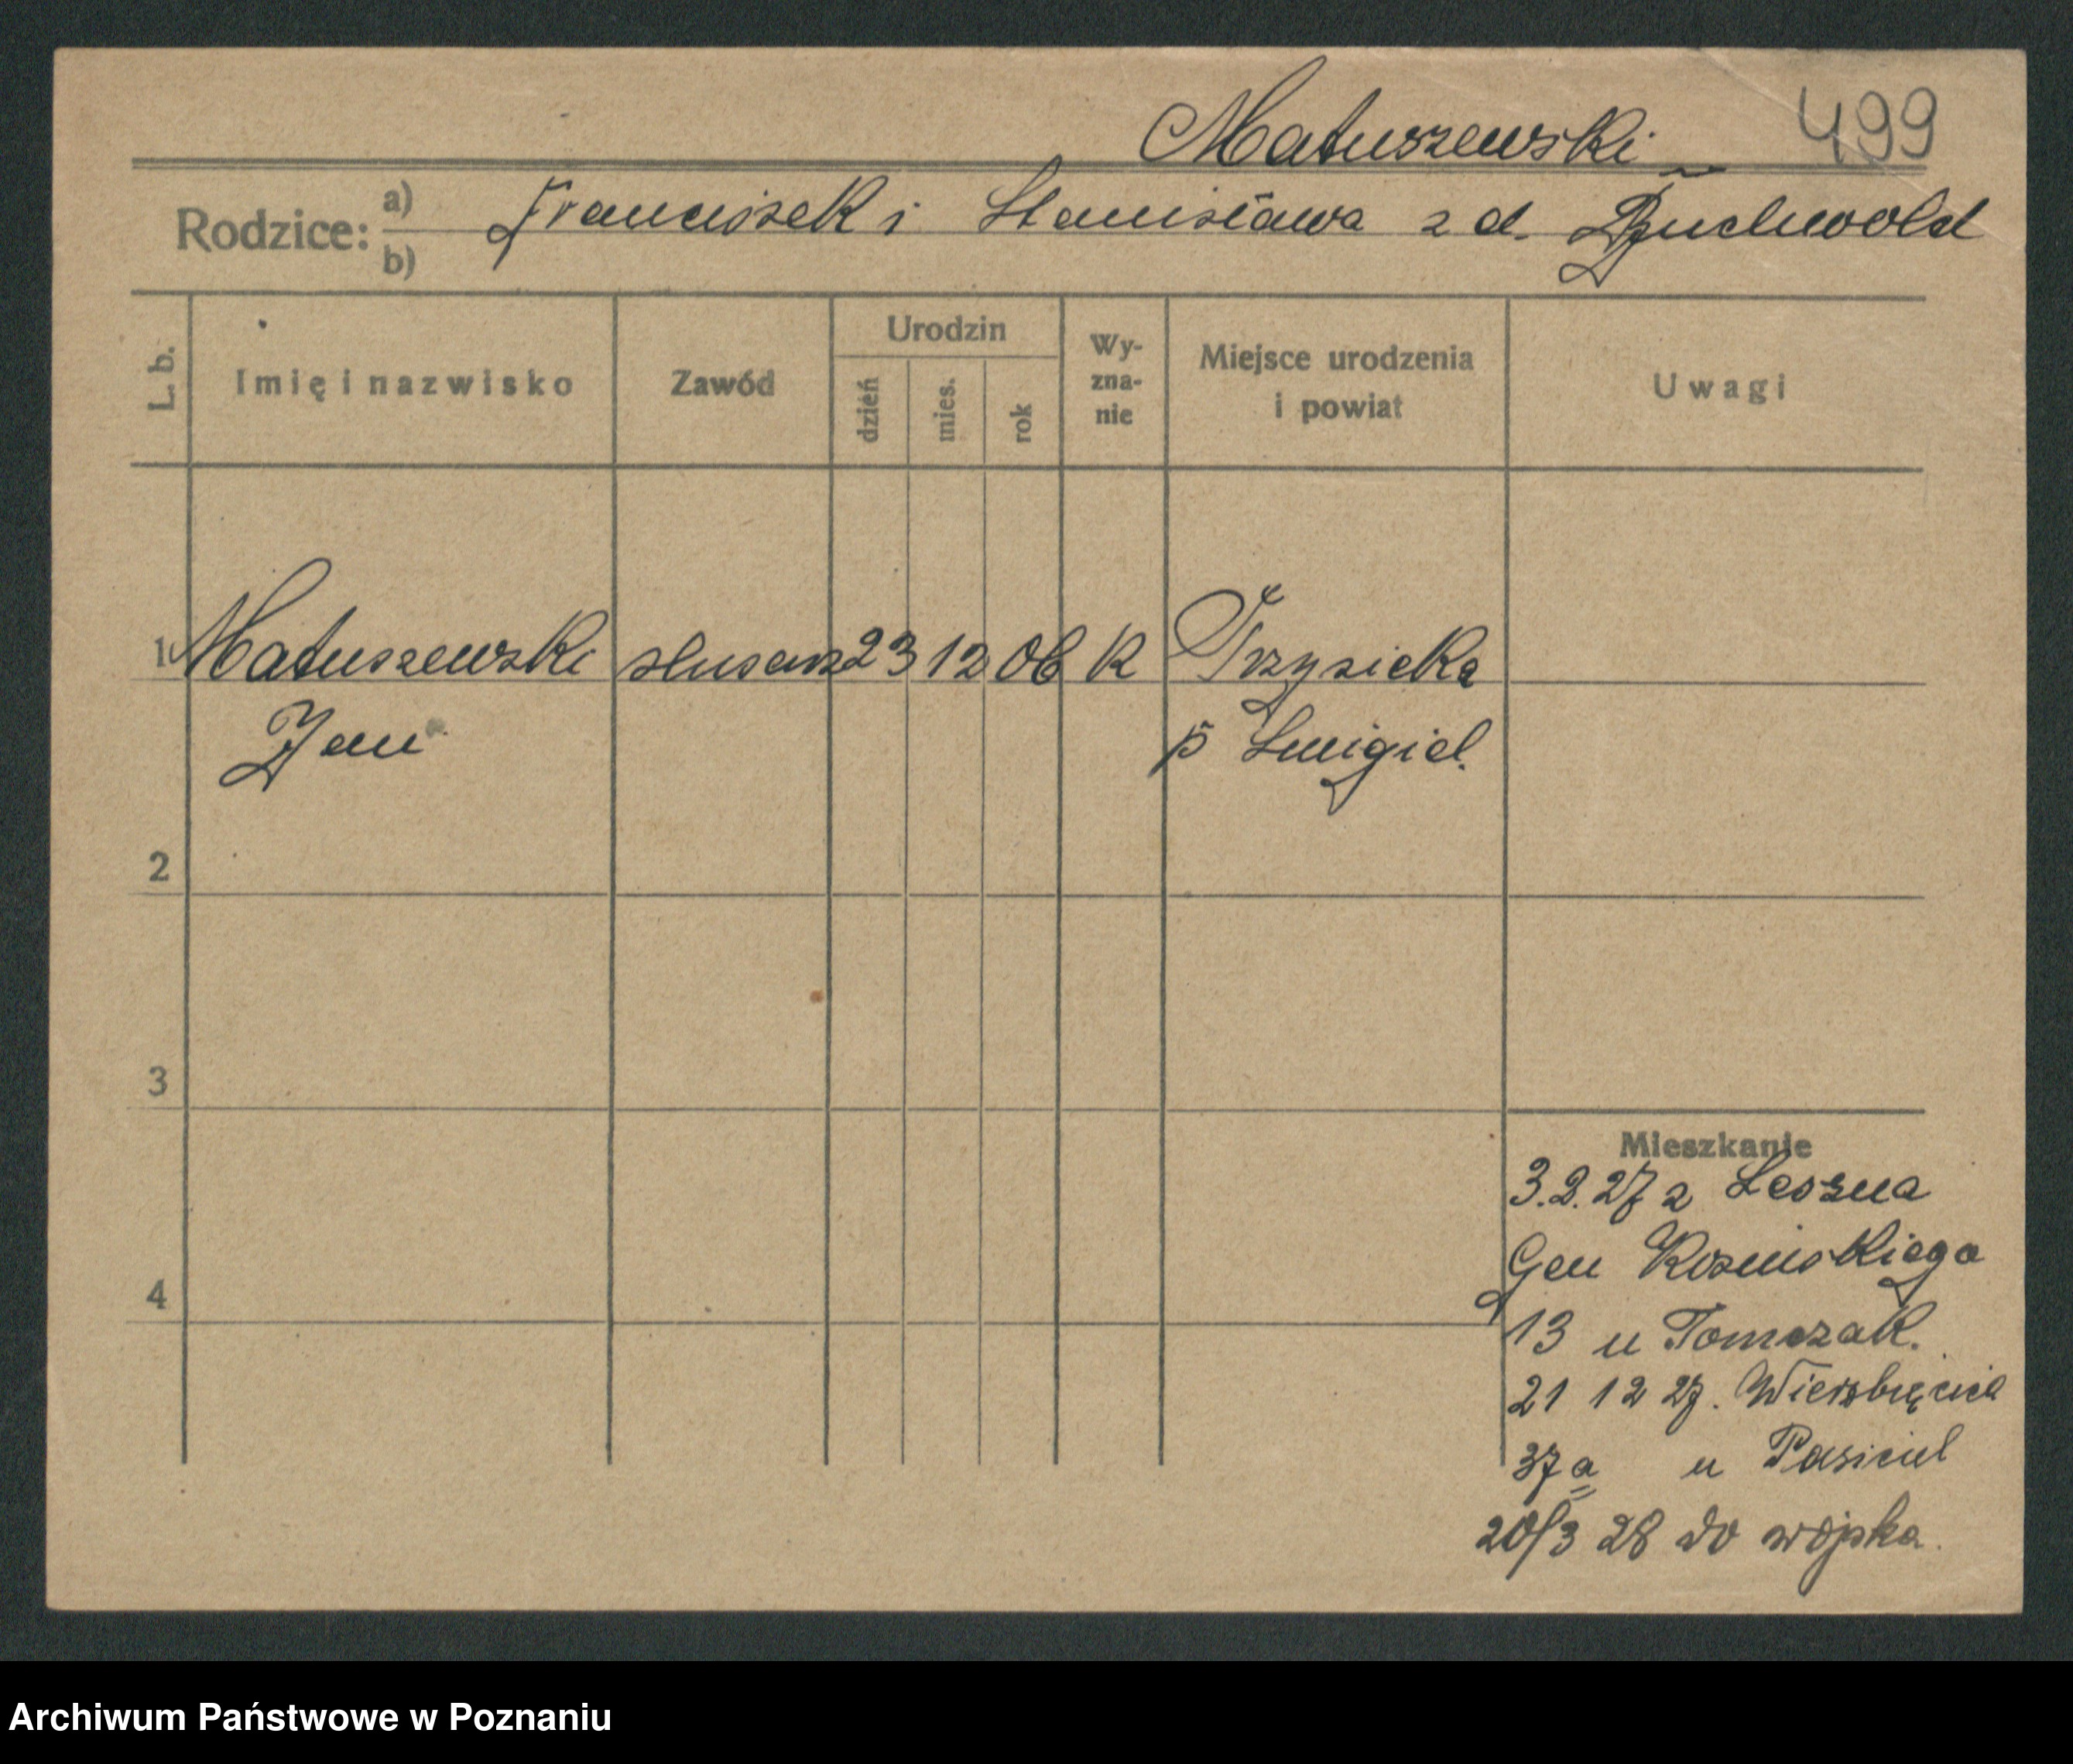 Matuszewski 499
Rodzice: a) b) Franciszek i Stanisława z d. Buchwold
L. b. Imię i nazwisko Zawód Urodzin dzień mies. rok Wy-zna-nie Miejsce urodzenia i powiat Uwagi
1 Matuszewski ślusarz 23 12 06 K Trzysieka
Jan p Smigiel.
2
3
Mieszkanie
3.2.27 z Leszna
4 Gen Kosinskiego
13 u Tomczak.
21 12 27. Wierzbięcice
37a u
20/3 28 do wojska.
Archiwum Państwowe w Poznaniu